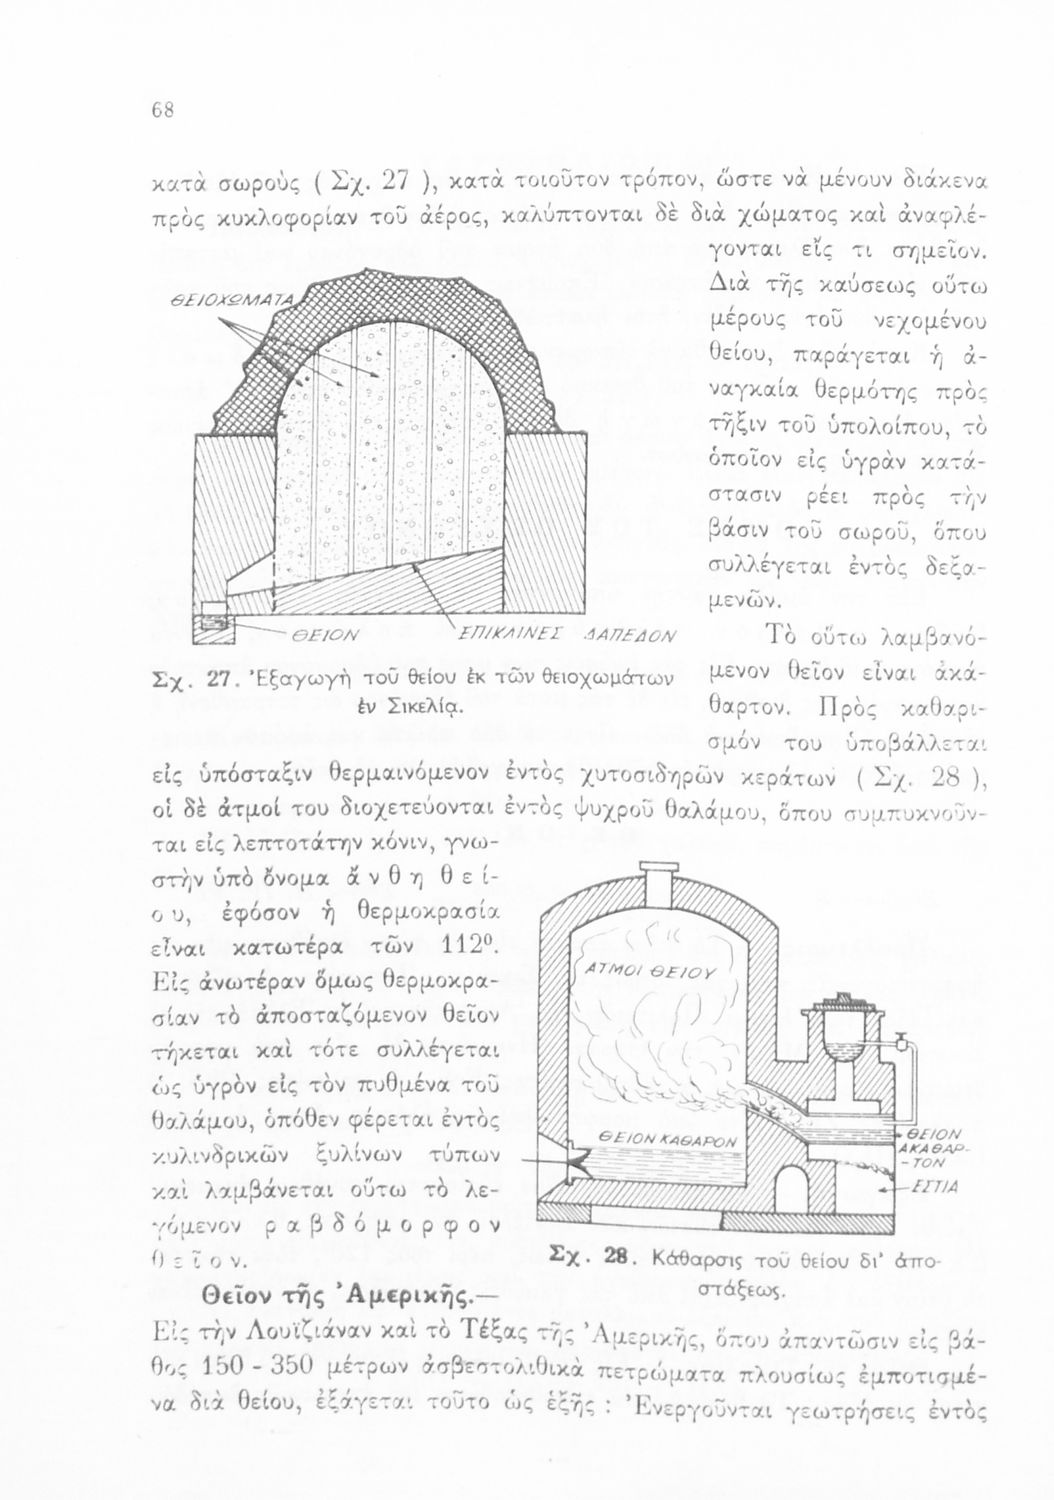 68
κατὰ σωροὺς ( Σχ. 27 ), κατὰ τοιοῦτον τρόπον, ὥστε νὰ μένουν διάκενα
πρὸς κυκλοφορίαν τοῦ ἀέρος, καλύπτονται δὲ διὰ χώματος καὶ ἀναφλέ-
γονται εἴς τι σημεῖον.
Διὰ τῆς καύσεως οὕτω
μέρους τοῦ νεχομένου
θείου, παράγεται ἡ ἀ-
ναγκαία θερμότης πρὸς
τῆξιν τοῦ ὑπολοίπου, τὸ
ὁποῖον εἰς ὑγρὰν κατά-
στασιν ρέει πρὸς τὴν
βάσιν τοῦ σωροῦ, ὅπου
συλλέγεται ἐντὸς δεξα-
μενῶν.
ΘΕΙΟΧΩΜΑΤΑ
ΘΕΙΟΝ
ΕΠΙΚΛΙΝΕΣ ΔΑΠΕΔΟΝ
Σχ. 27. Ἐξαγωγὴ τοῦ θείου ἐκ τῶν θειοχωμάτων
ἐν Σικελίᾳ.
Τὸ οὕτω λαμβανό-
μενον θεῖον εἶναι ἀκά-
θαρτον. Πρὸς καθαρι-
σμόν του ὑποβάλλεται
εἰς ὑπόσταξιν θερμαινόμενον ἐντὸς χυτοσιδηρῶν κεράτων ( Σχ. 28 ),
οἱ δὲ ἀτμοί του διοχετεύονται ἐντὸς ψυχροῦ θαλάμου, ὅπου συμπυκνοῦν-
ται εἰς λεπτοτάτην κόνιν, γνω-
στὴν ὑπὸ ὄνομα ἄ ν θ η θ ε ί-
ο υ, ἐφόσον ἡ θερμοκρασία
εἶναι κατωτέρα τῶν 112⁰.
Εἰς ἀνωτέραν ὅμως θερμοκρα-
σίαν τὸ ἀποσταζόμενον θεῖον
τήκεται καὶ τότε συλλέγεται
ὡς ὑγρὸν εἰς τὸν πυθμένα τοῦ
θαλάμου, ὁπόθεν φέρεται ἐντὸς
κυλινδρικῶν ξυλίνων τύπων
καὶ λαμβάνεται οὕτω τὸ λε-
γόμενον ρ α β δ ό μ ο ρ φ ο ν
θ ε ῖ ο ν.
ΑΤΜΟΙ ΘΕΙΟΥ
ΘΕΙΟΝ ΚΑΘΑΡΟΝ
ΘΕΙΟΝ
ΑΚΑΘΑΡ-
-ΤΟΝ
ΕΣΤΙΑ
Σχ. 28. Κάθαρσις τοῦ θείου δι' ἀπο-
στάξεως.
Θεῖον τῆς Ἀμερικῆς.—
Εἰς τὴν Λουϊζιάναν καὶ τὸ Τέξας τῆς Ἀμερικῆς, ὅπου ἀπαντῶσιν εἰς βά-
θος 150 - 350 μέτρων ἀσβεστολιθικὰ πετρώματα πλουσίως ἐμποτισμέ-
να διὰ θείου, ἐξάγεται τοῦτο ὡς ἑξῆς : Ἐνεργοῦνται γεωτρήσεις ἐντὸς